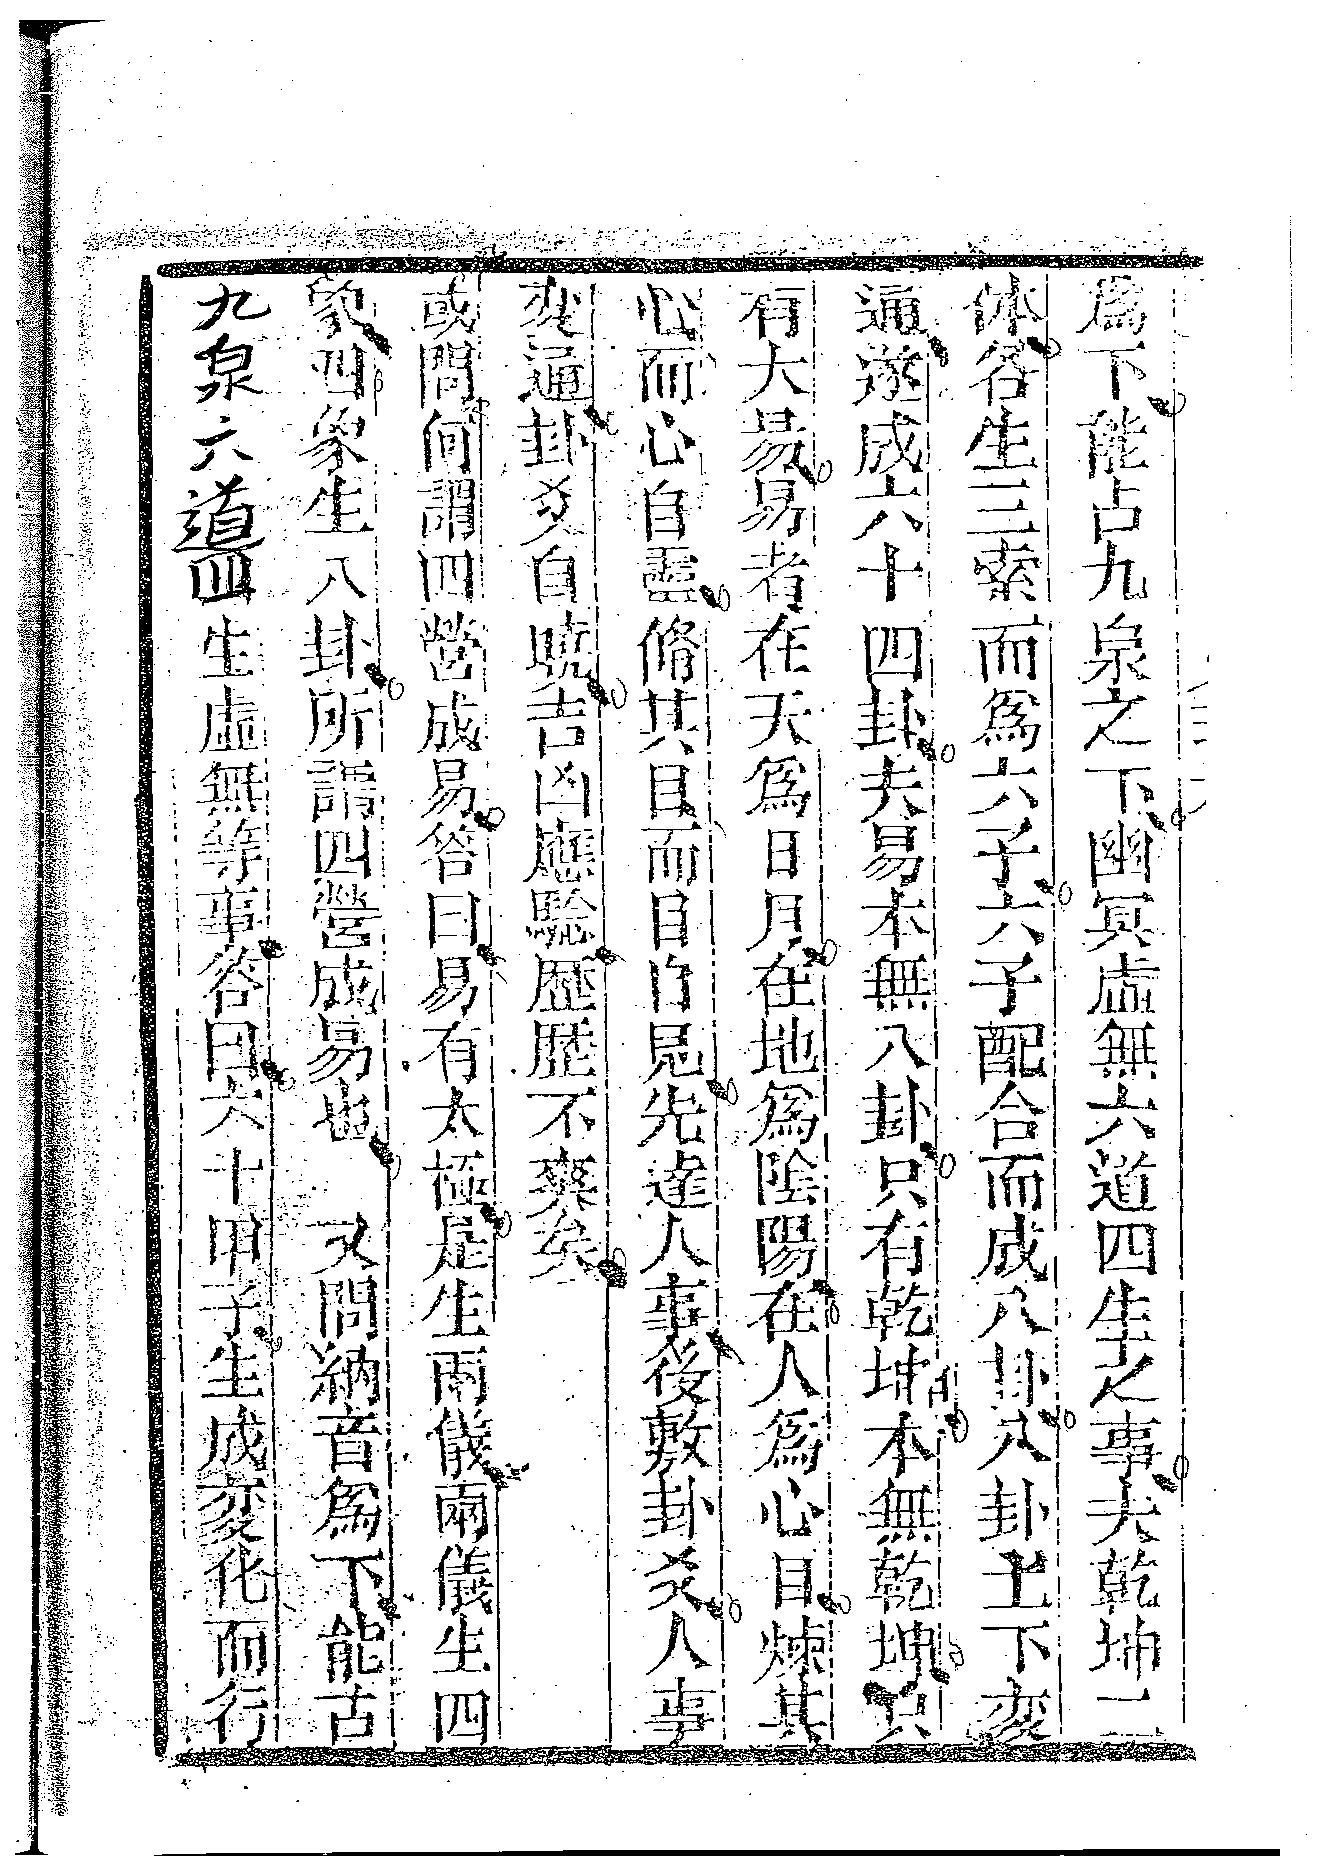 爲下能占九泉之下幽冥虛無六道四生之事夫乾坤二
体各生三索而爲六子六子配合而成八卦八卦上下変
通遂成六十四卦夫易本無八卦只有乾坤本無乾坤只
有大易易者在天爲日月在地爲陰陽在人爲心目煉其
心而心自靈脩其目而目自見先達人事後敷卦爻人事
変通卦爻自曉吉凶應驗歷歷不爽矣
或問何謂四營成易答曰易有太極是生兩儀兩儀生四
象四象生八卦所謂四營成易也　又問納音爲下能占
九泉六道四生虛無等事答曰六十甲子生成変化而行